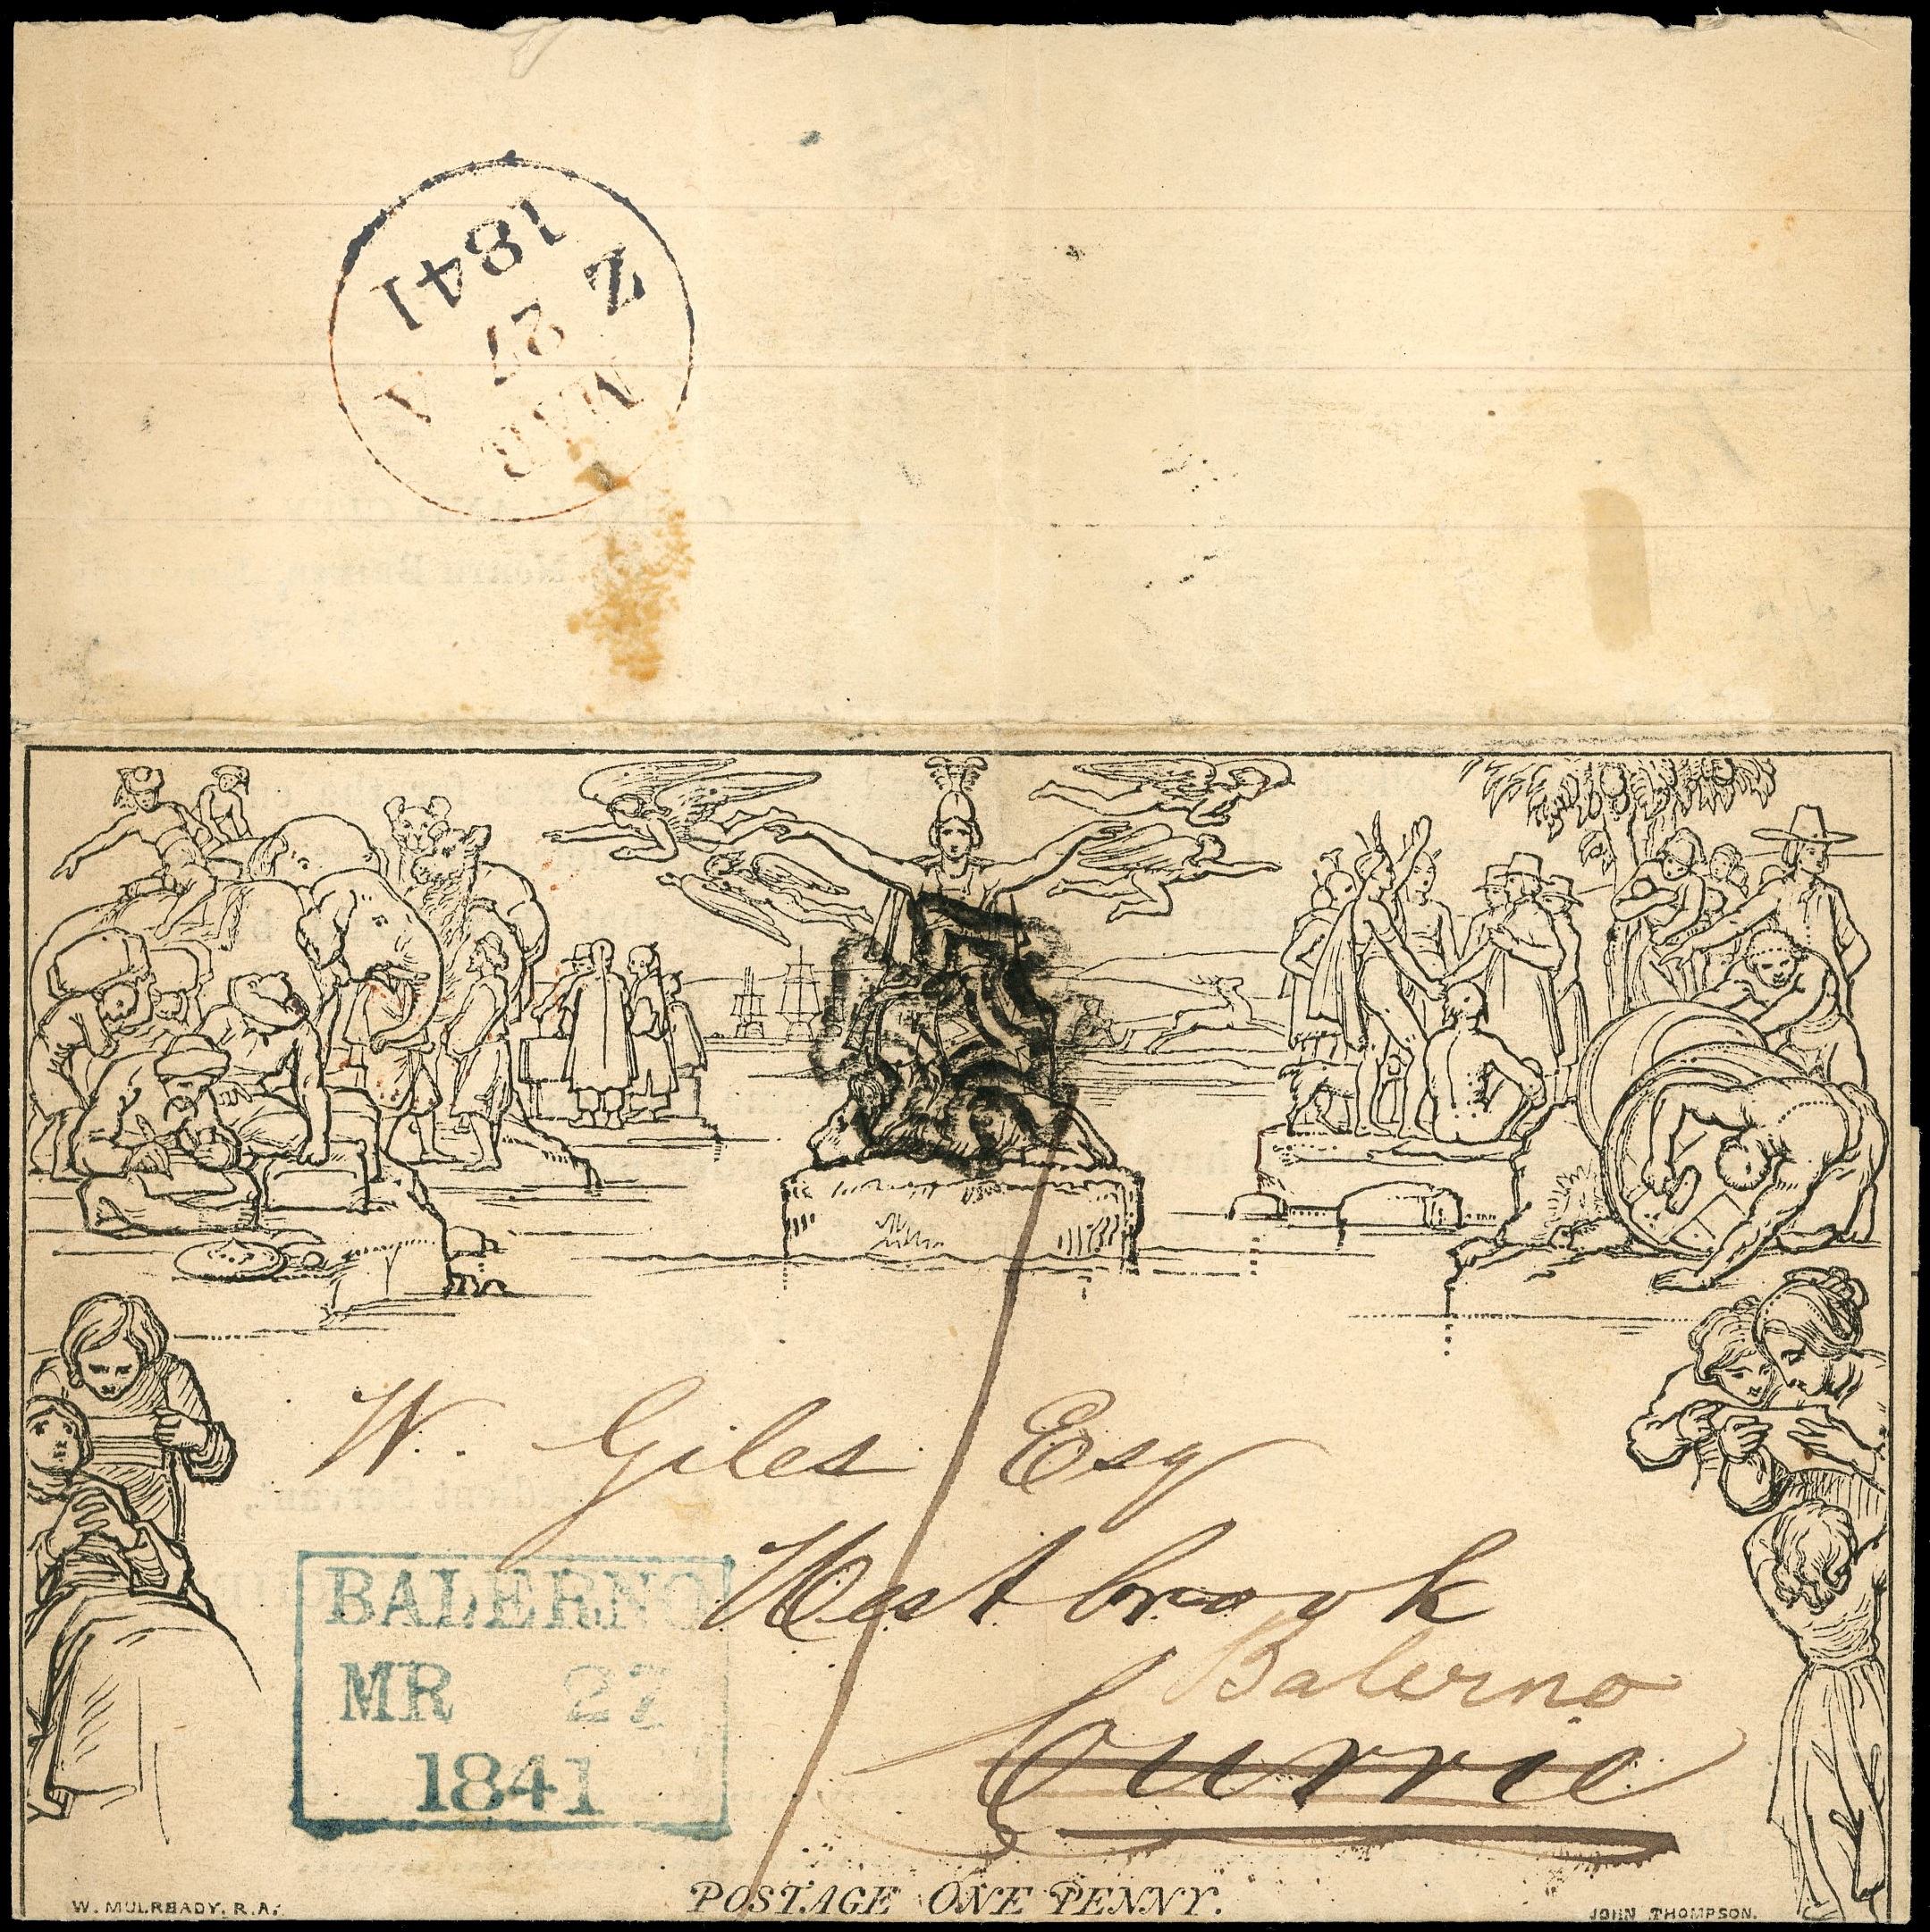 1841
Z 27 A
MAR
W. Giles Esq
Westbrook
Balerno
Currie
BALERNO
MR 27
1841
POSTAGE ONE PENNY.
W. MULREADY, R.A.
JOHN THOMPSON.